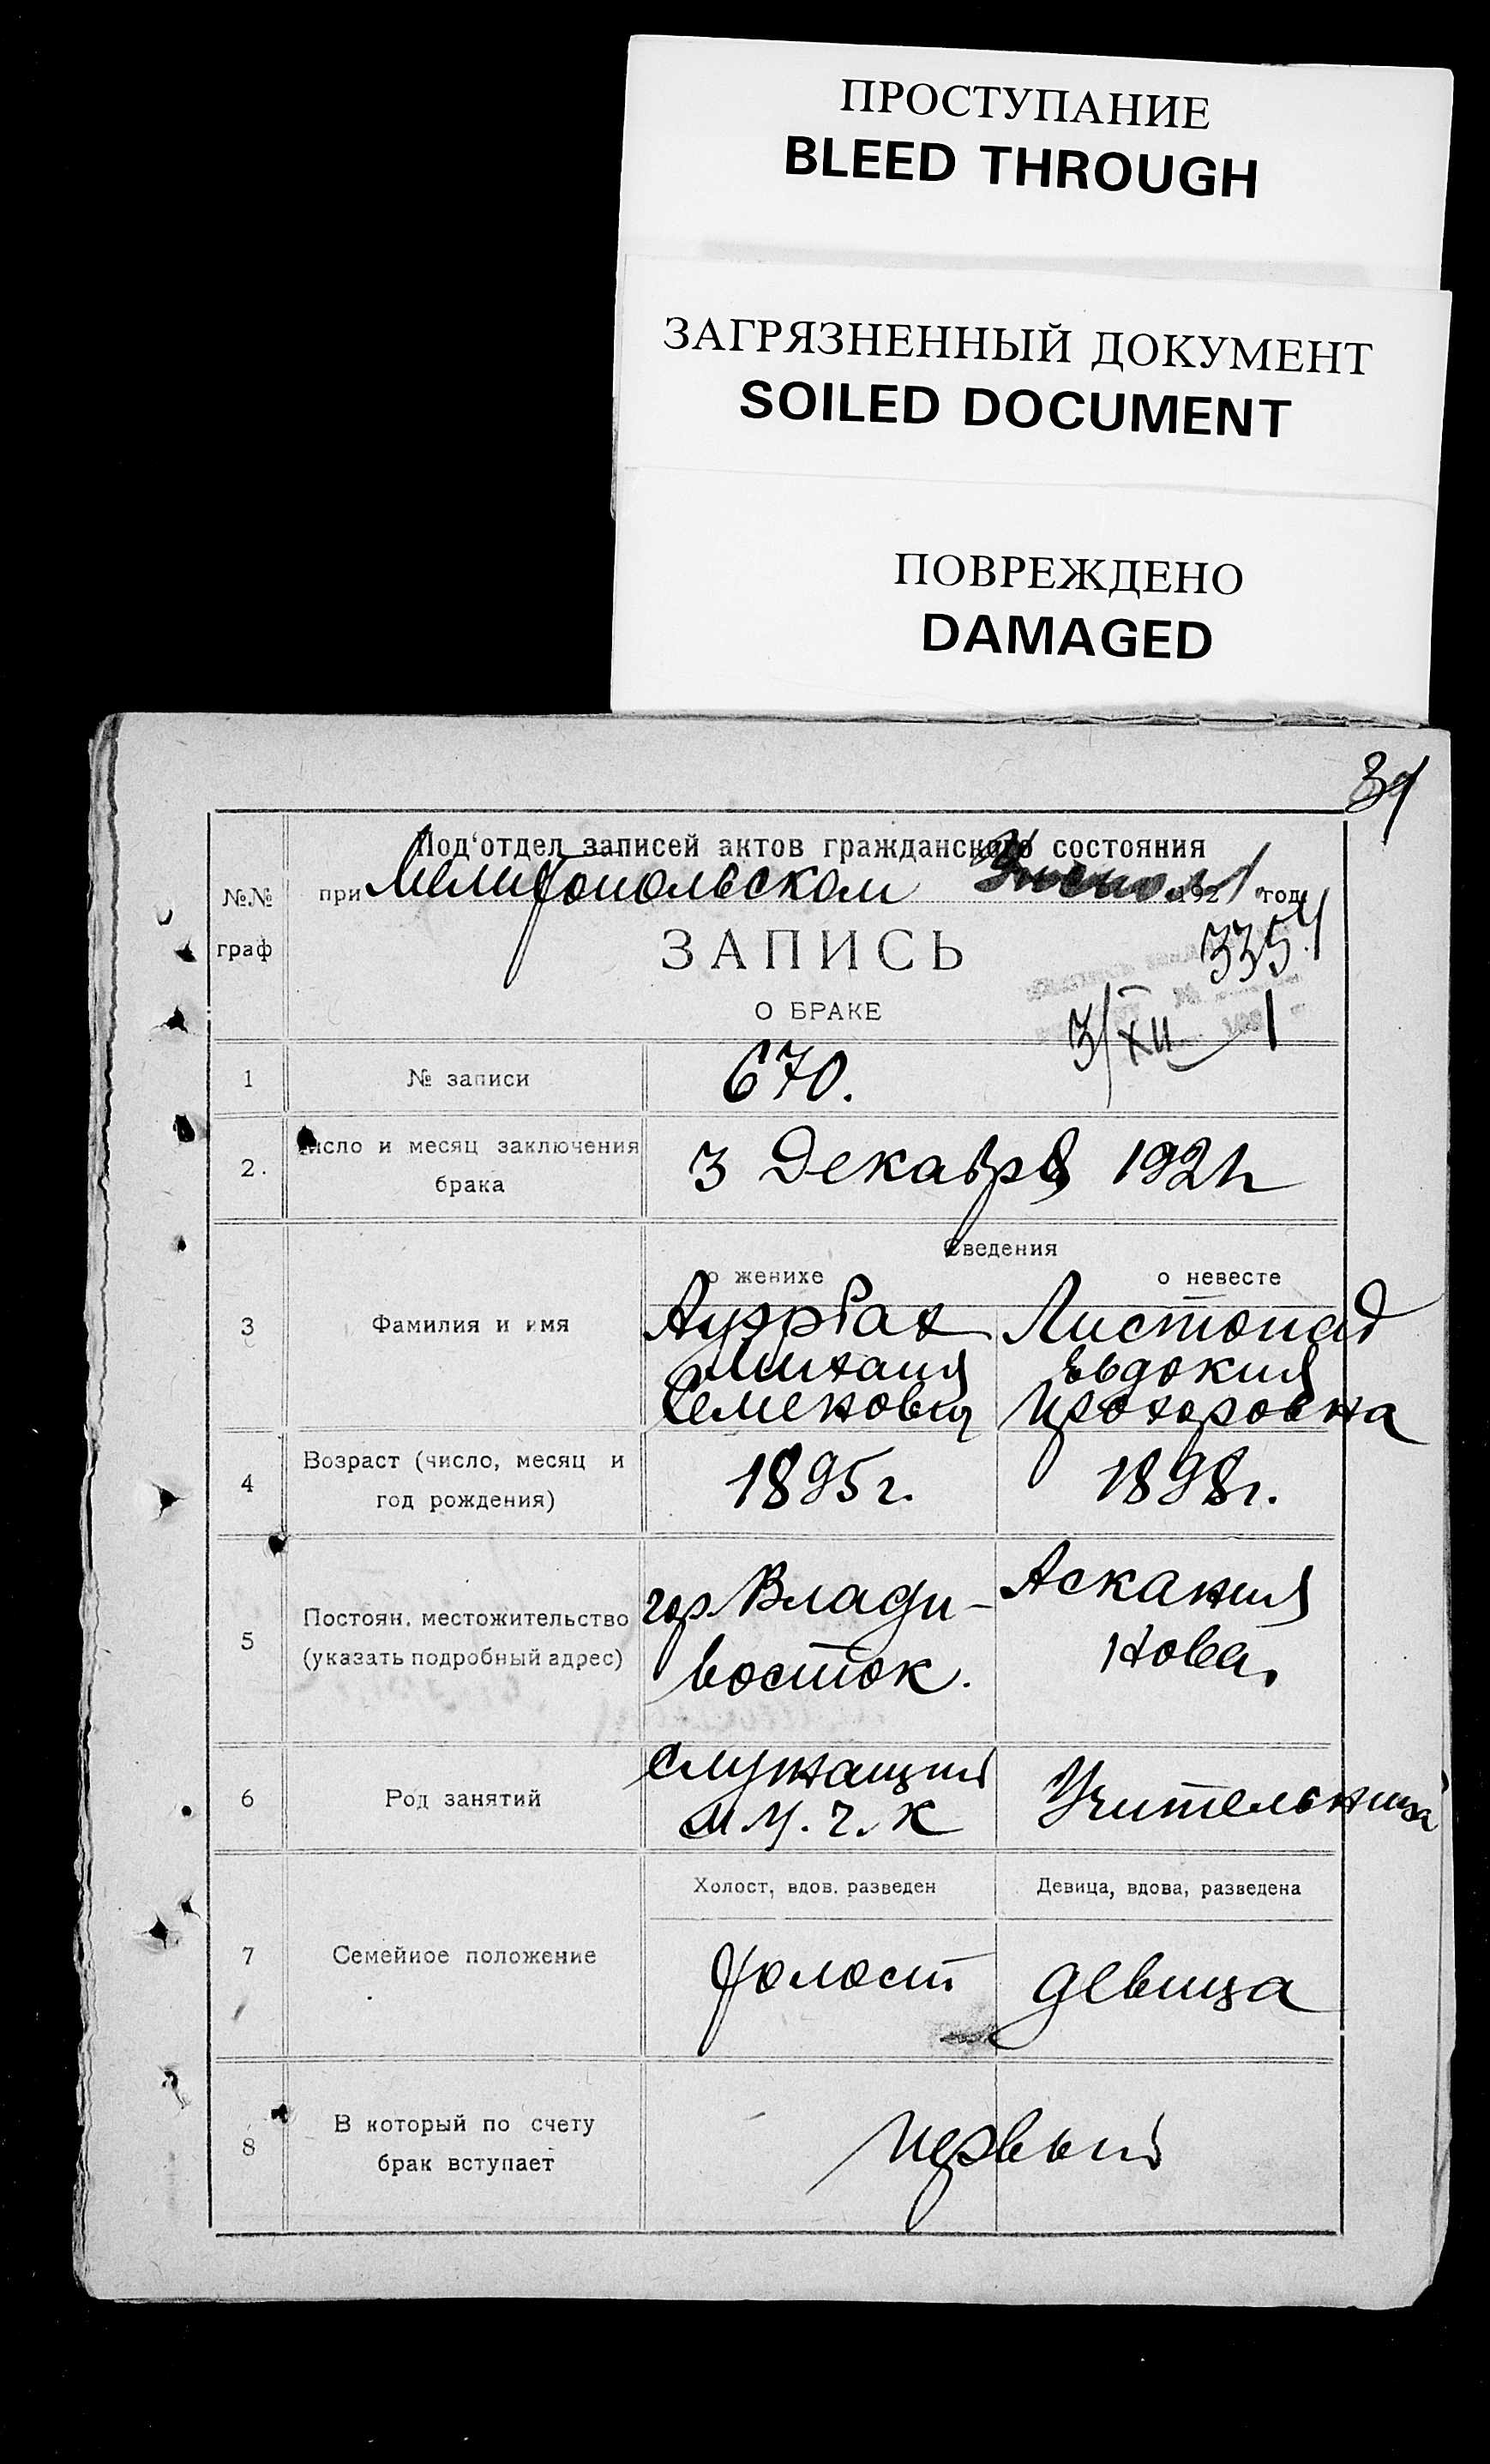 ПРОСТУПАНИЕ
BLEED THROUGH
ЗАГРЯЗНЕННЫЙ ДОКУМЕНТ
SOILED DOCUMENT
ПОВРЕЖДЕНО
DAMAGED
31
Под'отдел записей актов гражданского состояния
№№ граф
при Мелитопольском 1921 год
ЗАПИСЬ
335
О БРАКЕ
3/XII 1
1 № записи 670.
2. Число и месяц заключения брака 3 Декабря 1921 г
Сведения
о женихе о невесте
3 Фамилия и имя Ауэрбах Листопад
Михаил Евдокия
Семенович Прохоровна
4 Возраст (число, месяц и год рождения) 1895 г. 1898 г.
5 Постоян. местожительство (указать подробный адрес) гор. Влади- Аскания
восток. Нова.
6 Род занятий Служащий Учительница
М У. Ч. К
Холост, вдов. разведен Девица, вдова, разведена
7 Семейное положение Холост девица
8 В который по счету брак вступает первый